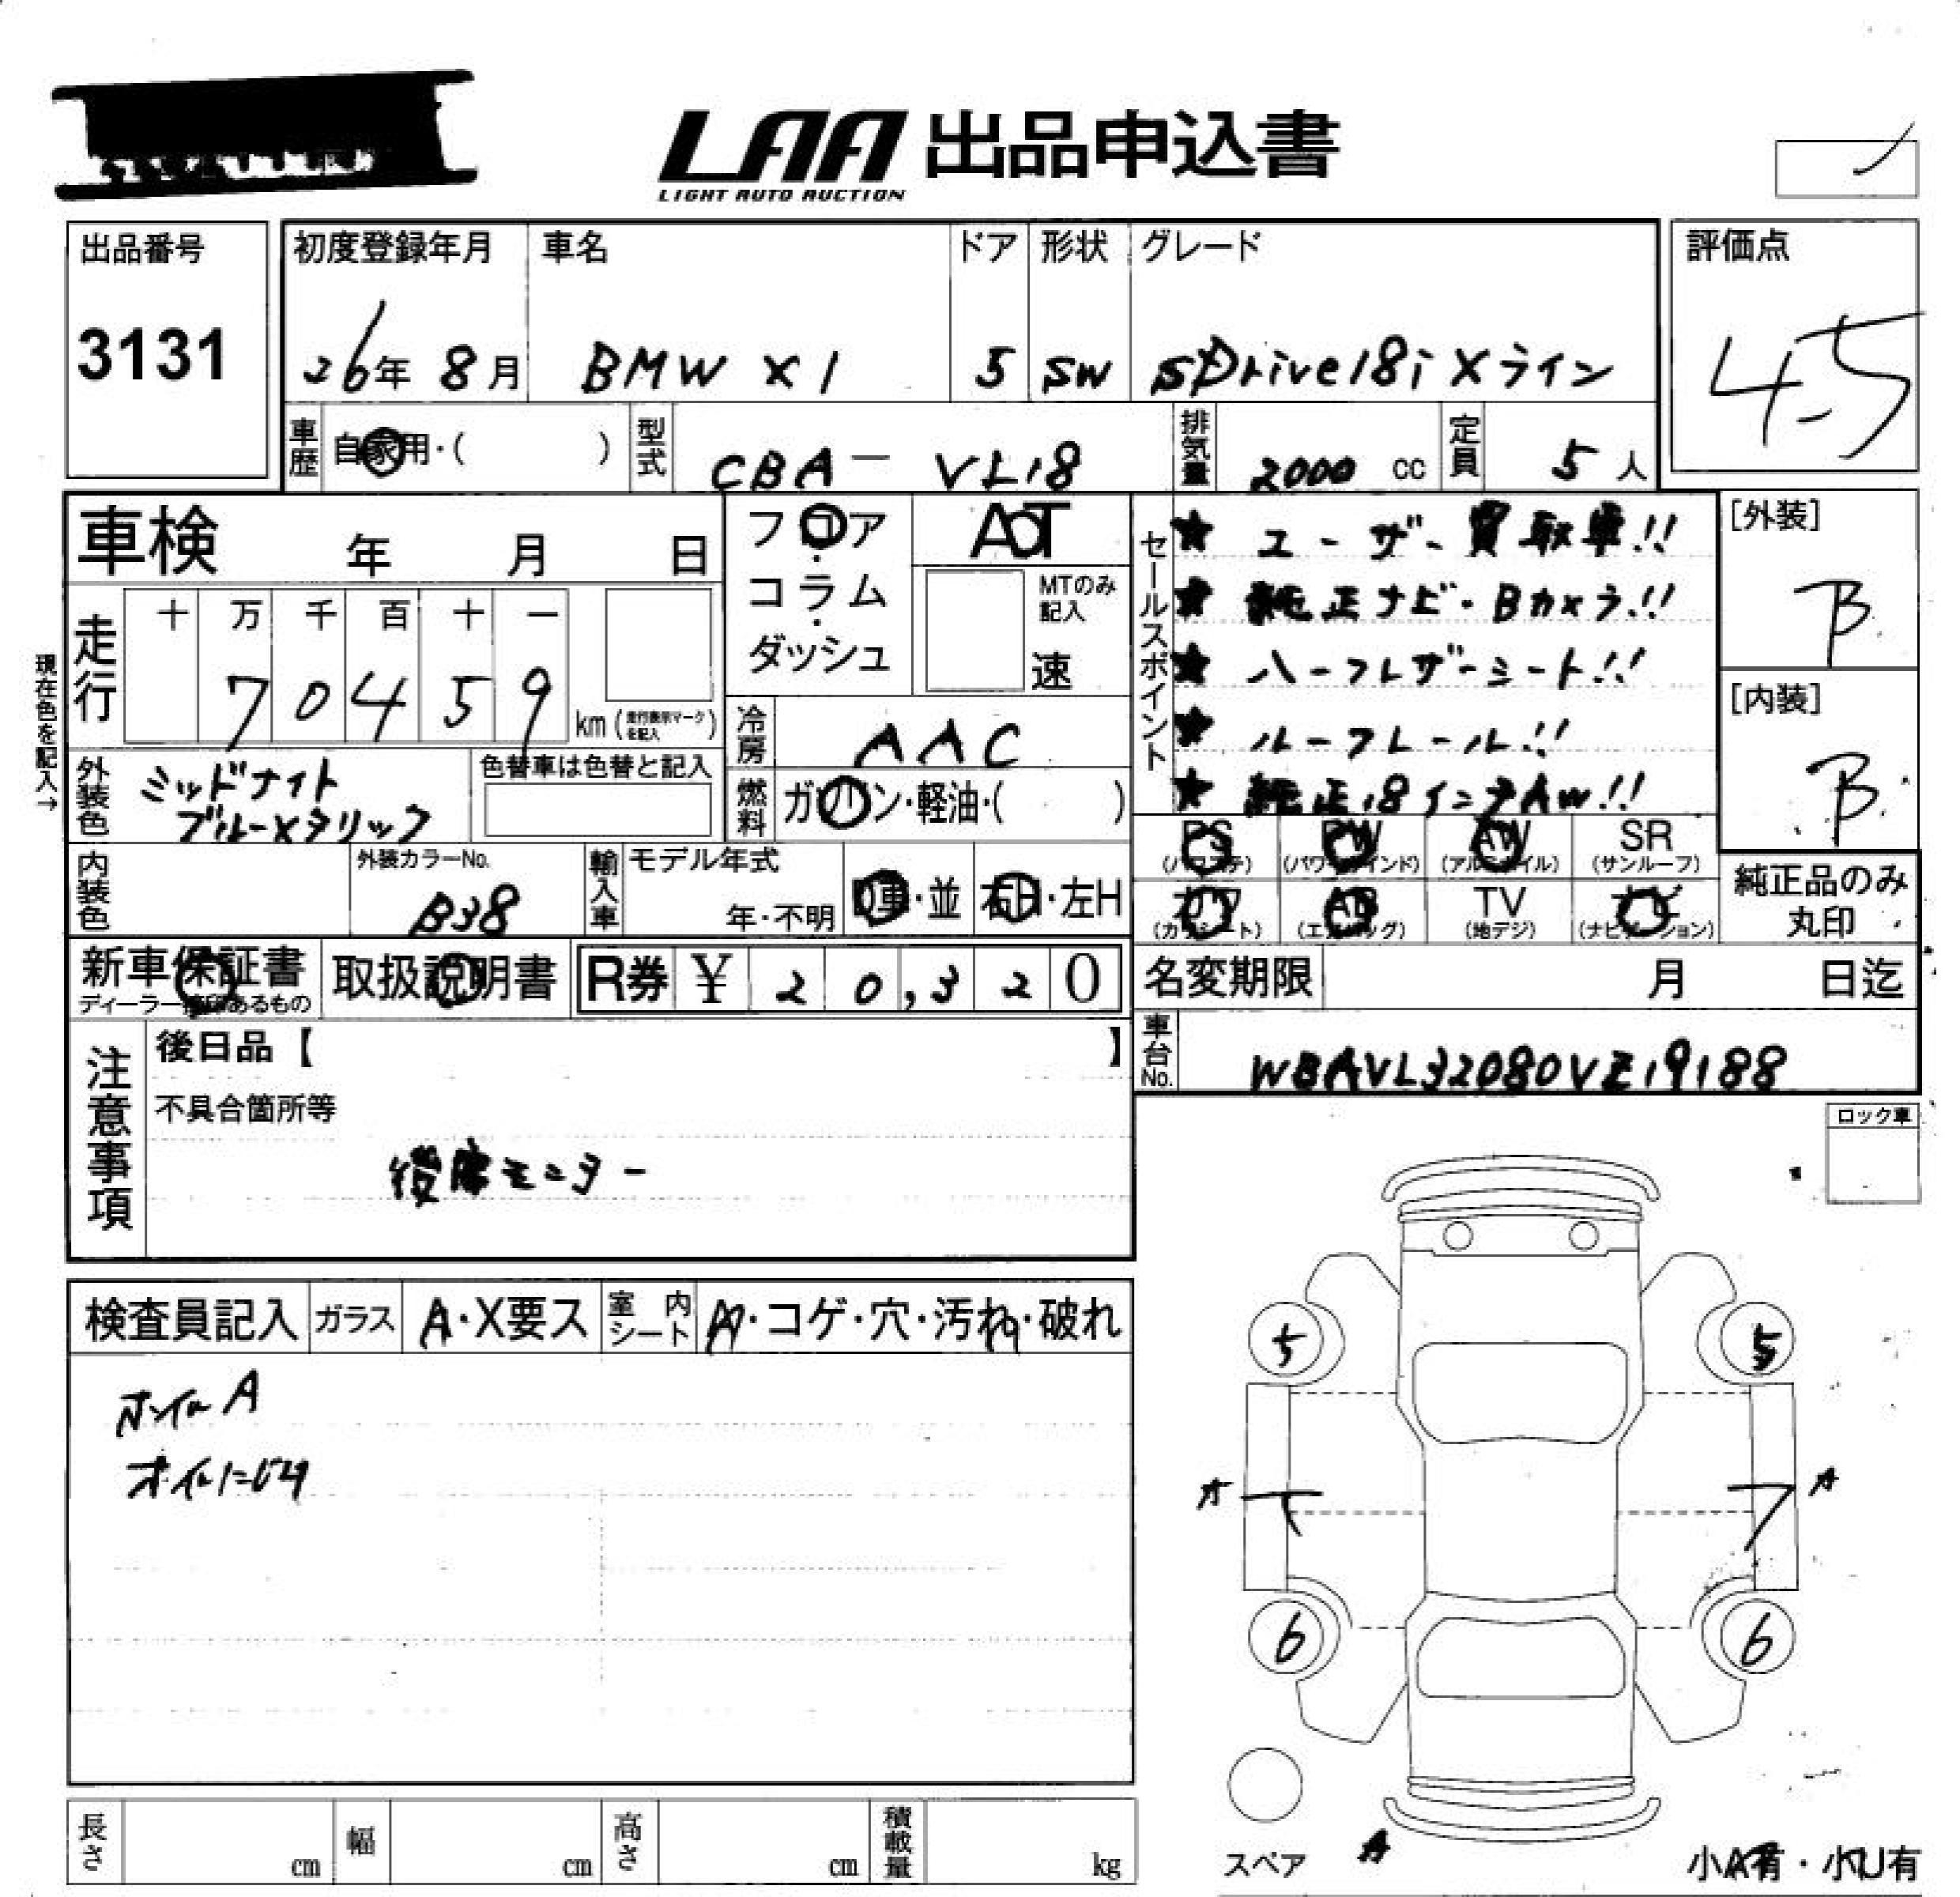 LAA 出品申込書
LIGHT AUTO AUCTION
出品番号
3131
初度登録年月
26年 8月
車名
BMW X1
ドア
5
形状
SW
グレード
sDrive18i Xライン
評価点
4.5
車歴
自家用・( )
型式
CBA-VL18
排気量
2000 cc
定員
5 人
車検 年 月 日
フロア・コラム・ダッシュ
AT
MTのみ記入
速
走行
十 万 千 百 十 一
7 0 4 5 9
km (走行表示マークを記入)
現在色を記入→
冷房
AAC
外装色
ミッドナイト
ブルーメタリック
色替車は色替と記入
燃料
ガソリン・軽油・( )
内装色
外装カラーNo.
B38
輸入車
モデル年式
年・不明
D車・並
右H・左H
セールスポイント
★ ユーザー買取車!!
★ 純正ナビ・Bカメラ!!
★ ハーフレザーシート!!
★ ルーフレール!!
★ 純正18インチAW!!
[外装]
B
[内装]
B
PS (パワステ)
PW (パワーウインド)
AW (アルミホイル)
SR (サンルーフ)
カワ (カワシート)
AB (エアバッグ)
TV (地デジ)
ナビ (ナビゲーション)
純正品のみ丸印
新車保証書
取扱説明書
R券 ¥ 20,320
名変期限 月 日迄
車台No.
WBAVL32080VZ19188
注意事項
後日品【 】
不具合箇所等
後席モニター
ロック車
検査員記入
ガラス
A・X要ス
室内シート
・コゲ・穴・汚れ・破れ
ホイルA
オイルにじみ
5
5
A
A
6
6
スペア
A
小A有・小U有
長さ cm
幅 cm
高さ cm
積載量 kg